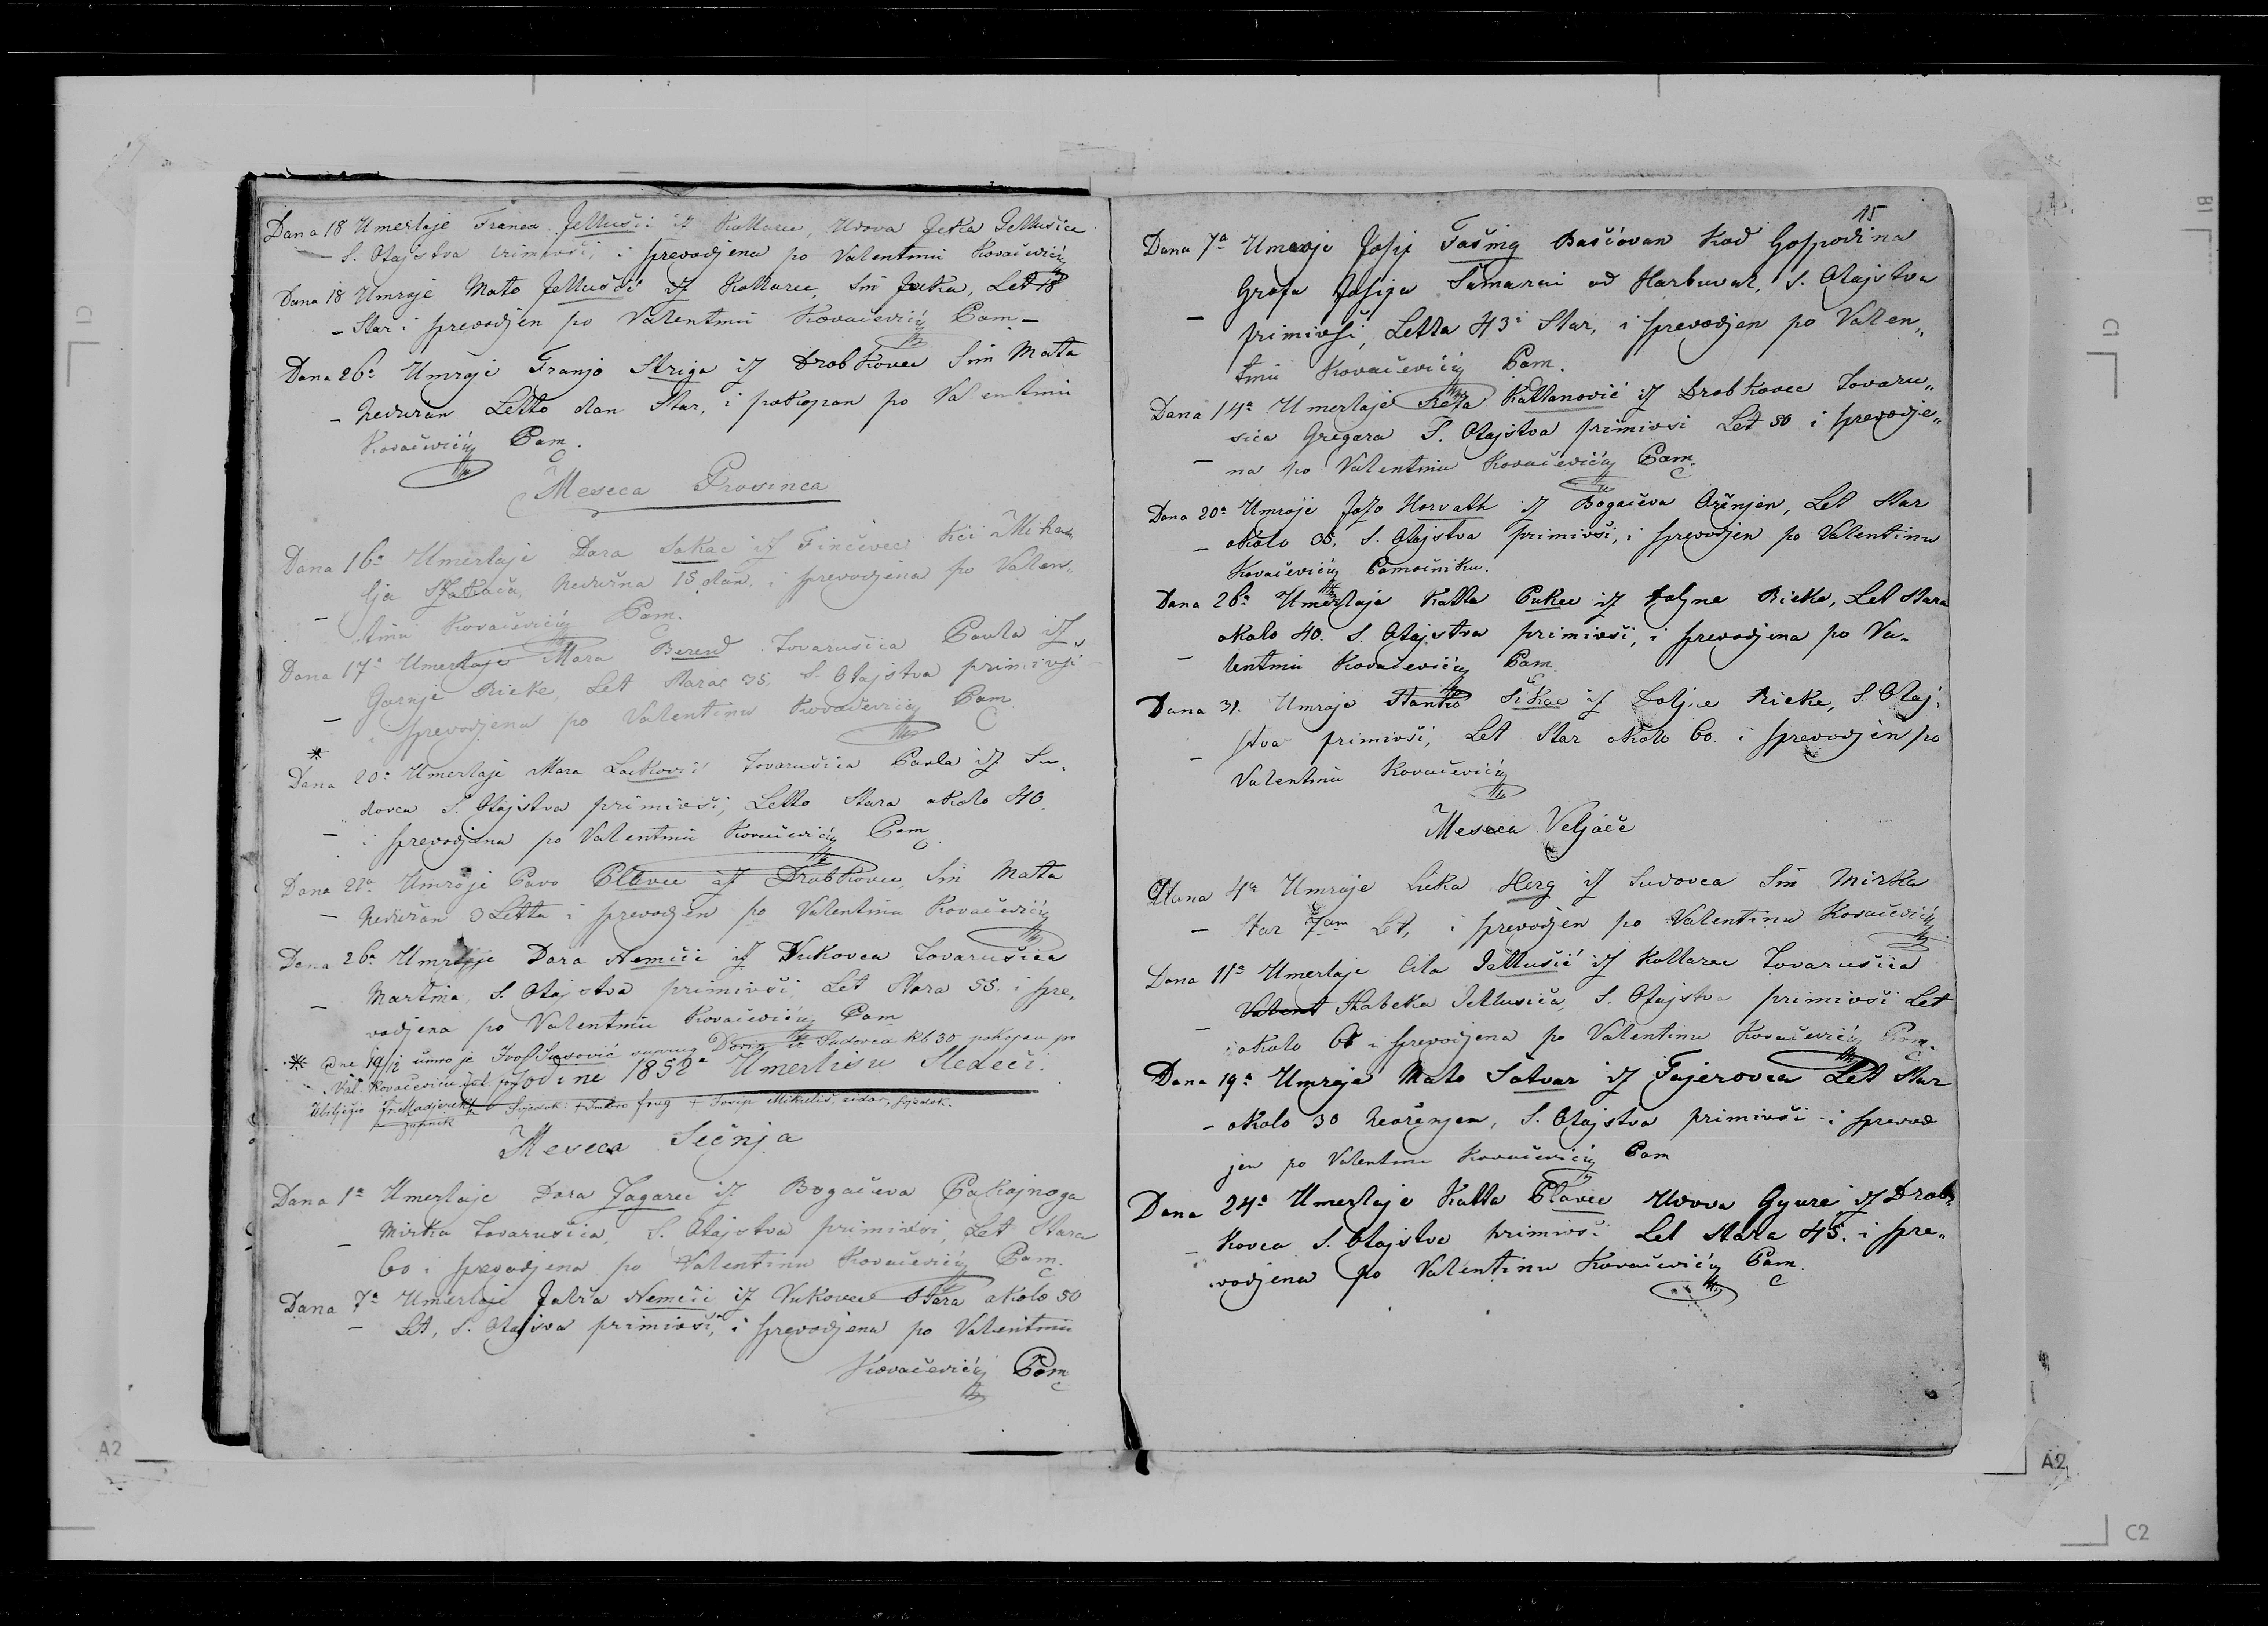 Dana 18 Umerlaje Franca Jellušić iz Kollarec, Udova Jelka Jellušića
— S. Otajstva primivši, i sprevodjena po Valentinu Kovačevićų
Dana 18 Umroje Mato Jellušić iz Kollarec, Sin Jelka, Let 18
— Star i sprevodjen po Valentinu Kovačevićų Pom —
Dana 26a Umroje Franjo Striga iz Drobkovec Sin Mata
— Nedužan Letto dan Star, i pokopan po Valentinu
Kovačevićų Pom.
Meseca Prosinca
Dana 16a Umerlaje Dara Sakac iz Finčevec kći Miha
lja Szakača, Nedužna 15 dan. i sprevodjena po Valen„
— tinu Kovačevićų Pom.
Dana 17a Umerlaje Mara Berend Tovarušica Pavla iz
Gornje Rieke, Let Stara 35, S. Otajstva primivši
— i sprevodjena po Valentinu Kovačevićų Pom.
*
Dana 20a Umerlaje Mara Lacković Tovarušica Pavla iz Su„
dovca S. Otajstva primivši, Letto Stara okolo 40.
— i sprevodjena po Valentinu Kovačevićų Pom
Dana 21a Umroje Pavo Plavec iz Drobkovec, Sin Matta
— Nedužan 3 Letta i sprevodjen po Valentinu Kovačevićų
Dana 26a Umrlaje Dara Nemčić iz Vukovca Tovarušica
— Martina, S. Otajstva primivši, Let Stara 55. i spre„
vodjena po Valentinu Kovačevićų Pom
* Dne 19/I umro je Sudović suprug iz Sudovca kb 30 pokopan po
Val. Kovačeviću
Godine 1852a Umerlisu Sledeći.
Ubilježio Fr. Madjerek Svjedok: + + Josip Mikulić, zidar, svjedok.
župnik
Meseca Sečnja
Dana 1a Umerlaje Dora Jagarec iz Bogačeva Pokojnoga
— Mirka Tovarušica, S. Otajstva primivši, Let Stara
60 i sprevodjena po Valentinu Kovačevićų Pom.
Dana 7a Umerlaje Jalža Nemčić iz Vukovec Stara okolo 50
— Let, S. Otajstva primivši, i sprevodjena po Valentinu
Kovačevićų Pom
15
Dana 7a Umroje Josip Fašing Baščovan kod Gospodina
Grofa Josipa od S. Otajstva
— primivši, Letta 43i Star, i sprevodjen po Valen„
tinu Kovačevićų Pom.
Dana 14a Umerlaje Reza Kattanović iz Drobkovec Tovaru„
šica Gregora S. Otajstva primivši Let 50 i sprevodje„
— na po Valentinu Kovačevićų Pom.
Dana 20a Umroje Jožo Horvath iz Bogačeva Oženjen, Let Star
— okolo 35, S. Otajstva primivši, i sprevodjen po Valentinu
Kovačevićų Pomoćniku.
Dana 26a Umerlaje Katta Pukec iz Dolyne Rieke, Let Stara
okolo 40. S. Otajstva primivši, i sprevodjena po Va„
— lentinu Kovačevićų Pom.
Dana 31. Umroje Stanko Sikac iz Dolyne Rieke, S. Otaj„
stva primivši, Let Star okolo 60. i sprevodjen po
— Valentinu Kovačevićų
Meseca Veljače
Dana 4a Umroje Luka Herg iz Sudovca Sin Mirka
— Star 7am Let, i sprevodjen po Valentinu Kovačevićų
Dana 11a Umerlaje Cila Jellušić iz Kollarec Tovarušica
Valent Skabeka Jellušića, S. Otajstva primivši Let
— okolo i sprevodjena po Valentinu Kovačevićų Pom.
Dana 19a Umroje Mato Satvar iz Fajerovca Let Star
— okolo 30 neoženjen, S. Otajstva primivši i sprevod
jen po Valentinu Kovačevićų Pom
Dana 24a Umerlaje Katta Plavec Udova Gyure, iz Drob„
— kovca S. Otajstva primivši Let Stara 45. i spre„
vodjena po Valentinu Kovačevićų Pom.
C1
A2
B1
C1
A2
C2